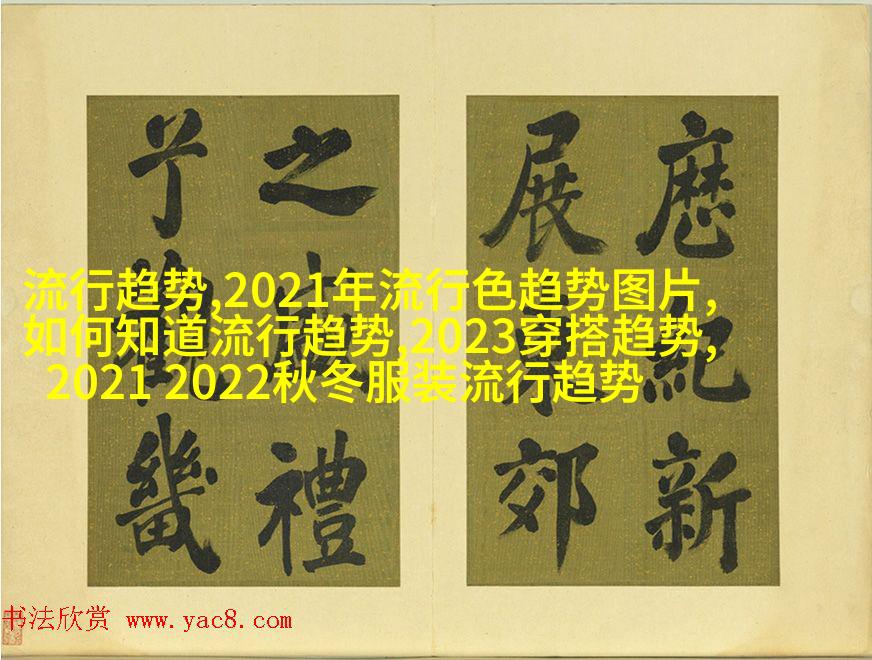 歷紀新
展郊
之禮
觀畿
流行趋势,2021年流行色趋势图片,
如何知道流行趋势,2023穿搭趋势,
2021 2022秋冬服装流行趋势
书法欣赏 www.yac8.com